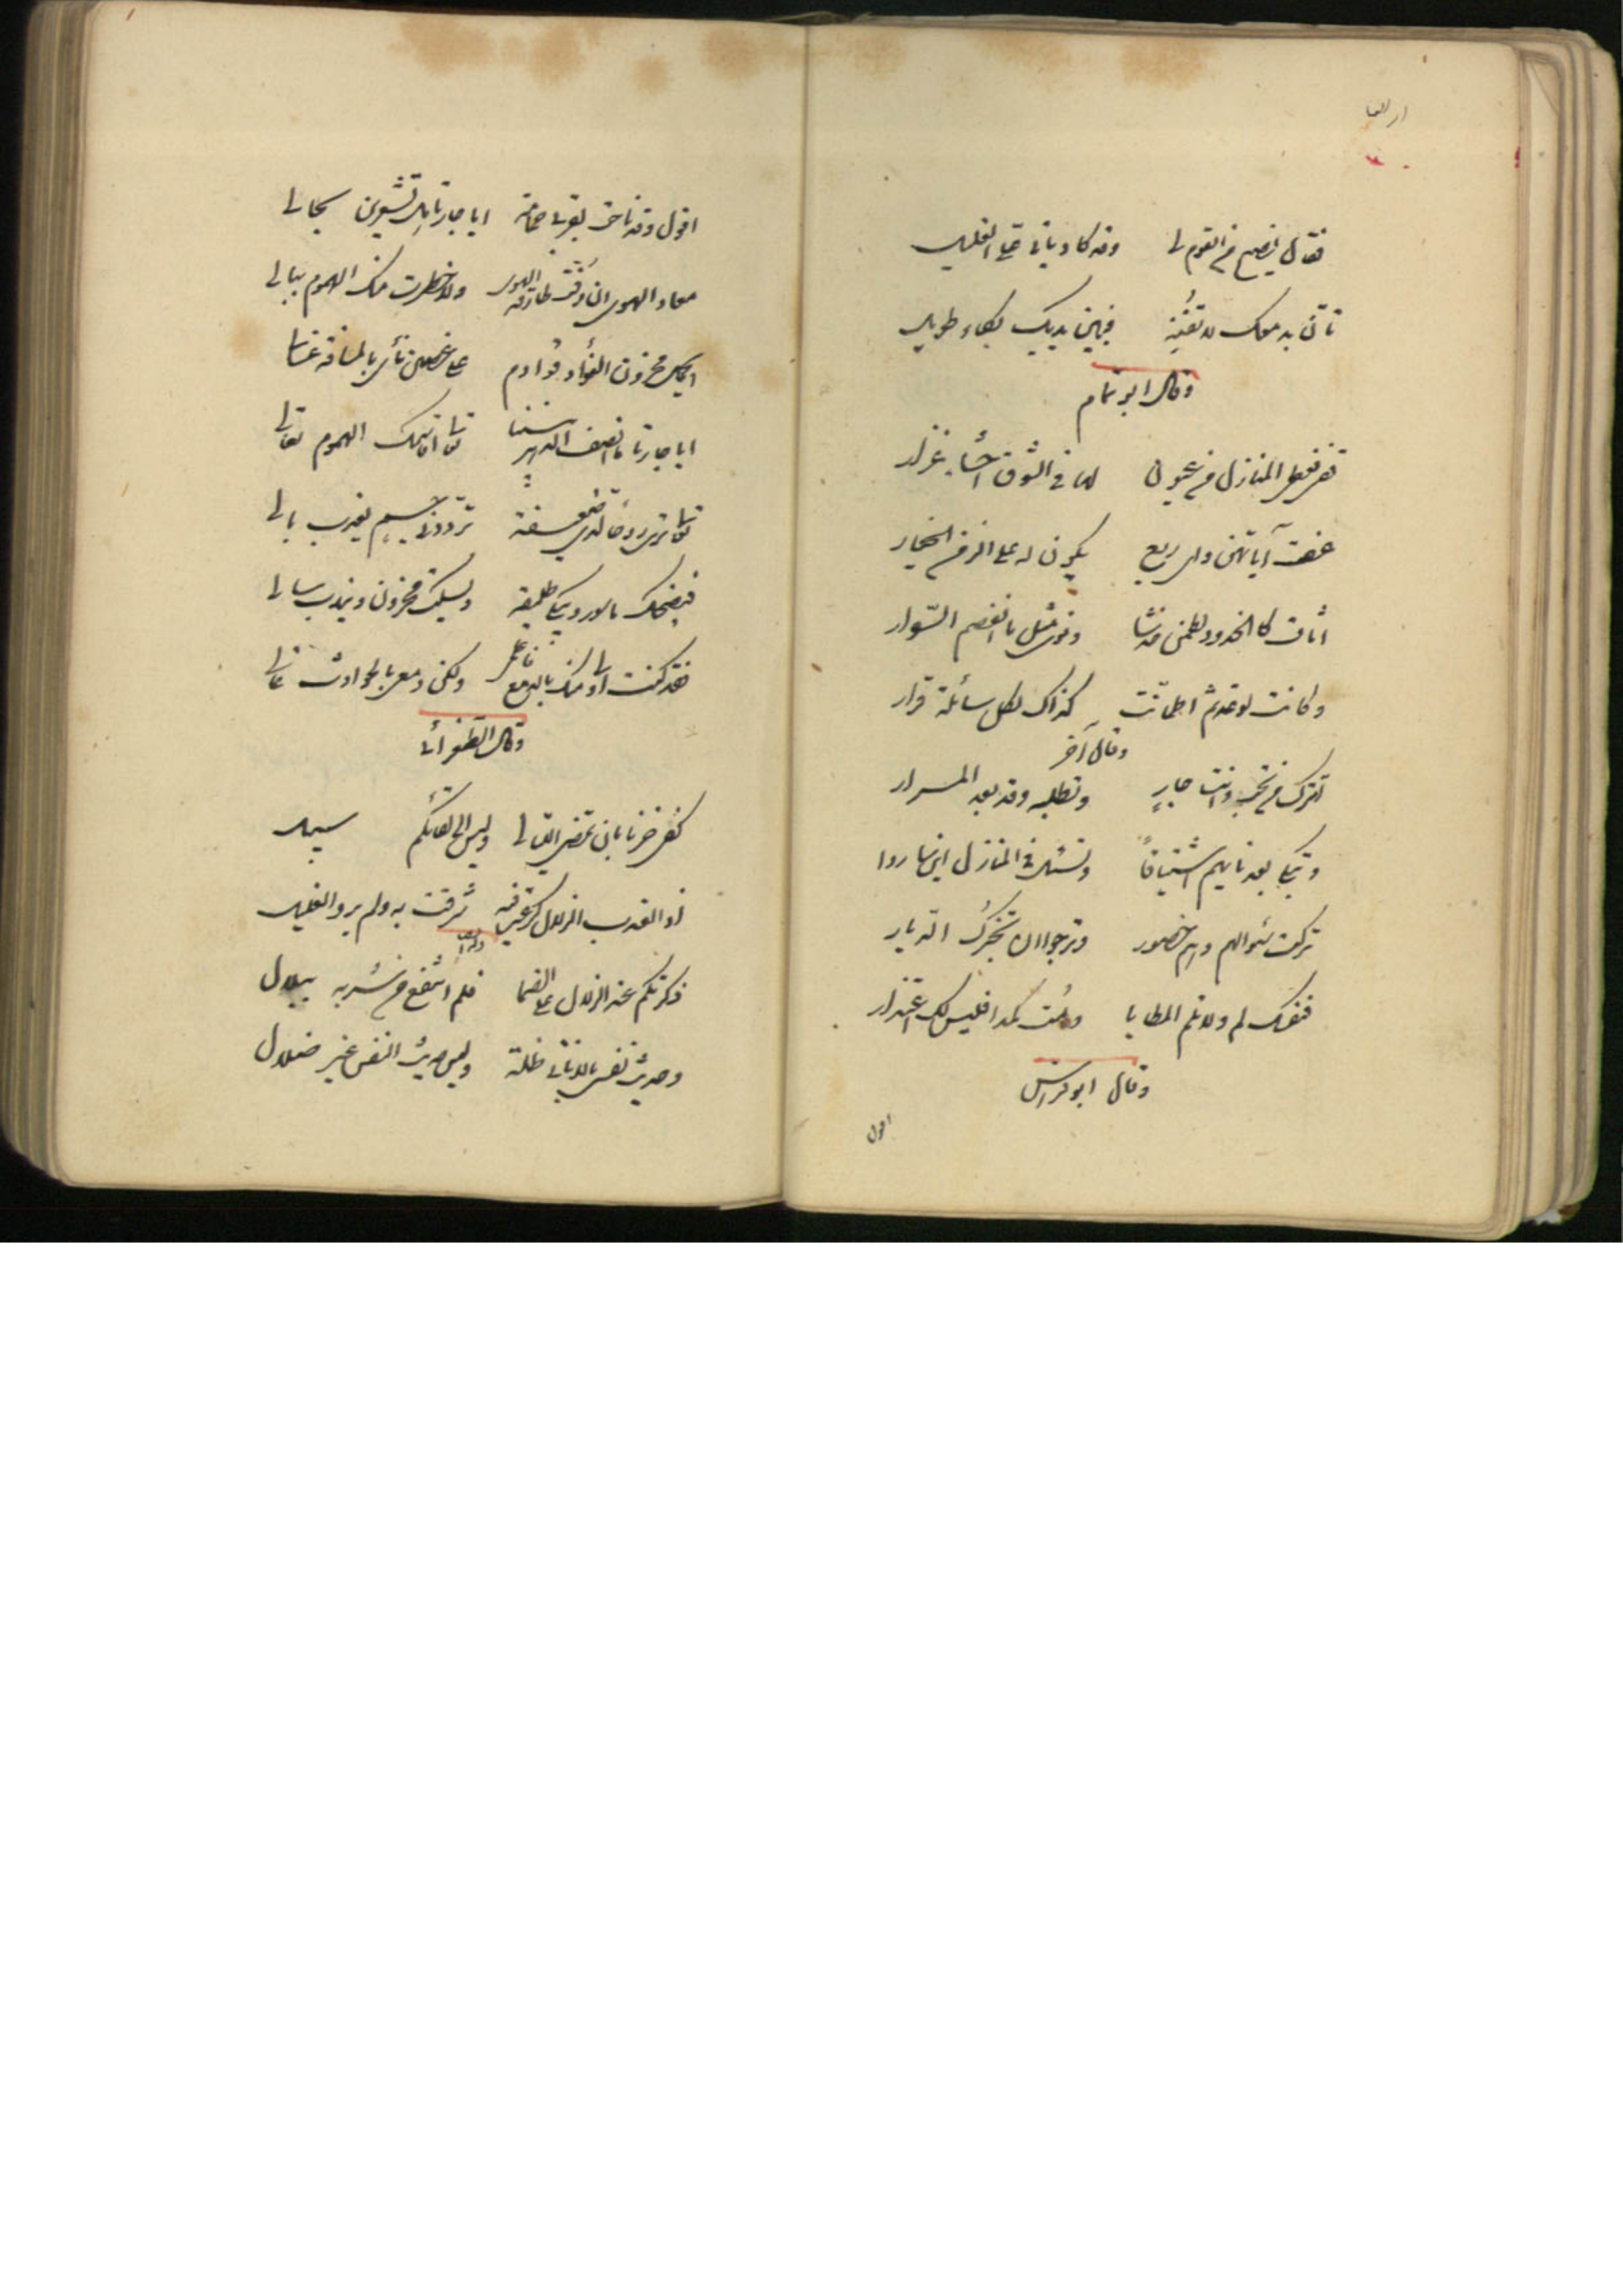 فقال نصيح من القوم لى وقد كاد يأتى على الغليل
تأنّ بدمعك لا تفنه فبين يديك بكاء طويل
وقال ابو تمام
قفى نعطى المنازل من عيون لها فى الشوق احشاء غزار
عفت آياتهن واى ربع يكون له على الزمن الخيار
اثاف كالخدود لطمن حزنا ونؤى مثل ما انفصم السّوار
وكانت لوعة ثم اطمأنت كذاك لكل سائلة قرار
وقال آخر
اتترك من تحب وانت جار وتطلبه وقد بعد المزار
وتبكى بعد نايهم اشتياقاً وتسئل فى المنازل اين ساروا
تركت سؤالهم وهم حضور وترجو ان تخبرك الديار
فنفسك لم ولا تلم المطايا ومُت كمدا فليس لك اعتذار
وقال ابو فراس
اقول
اقول وقد ناحت بقربى حمامة ايا جارتا هل تشعرين بحالى
معاذ الهوى ما ذقت طارقة الهوى ولا خطرت منك الهموم ببال
ايحمل محزون الفؤاد قوادم على غصن نائى المسافة عال
ايا جارتا ما انصف الدهر بيننا تعالى اقاسمك الهموم تعالى
تعالى ترى روحا لدى ضعيفة تردد فى جسم يعذب بالى
فيضحك ماسور وتبكى طليقة ويسكت محزون ويندب سالى
فقد كنت اولى منك بالدمع مقلة ولكن دمعى بالحوادث غالى
وقال الطغرائى
كفى حزنا بان تمضى الليالى وليس الى لقائكم سبيل
اذا العذب الزلال كرعت فيه شرقت به ولم يرو الغليل
وله ايضا
ذكرتكم عند الزلال على الظما فلم انتفع من شربه ببلال
وحديث نفسى بالامانى ظلة وليس حديث النفس غير ضلال